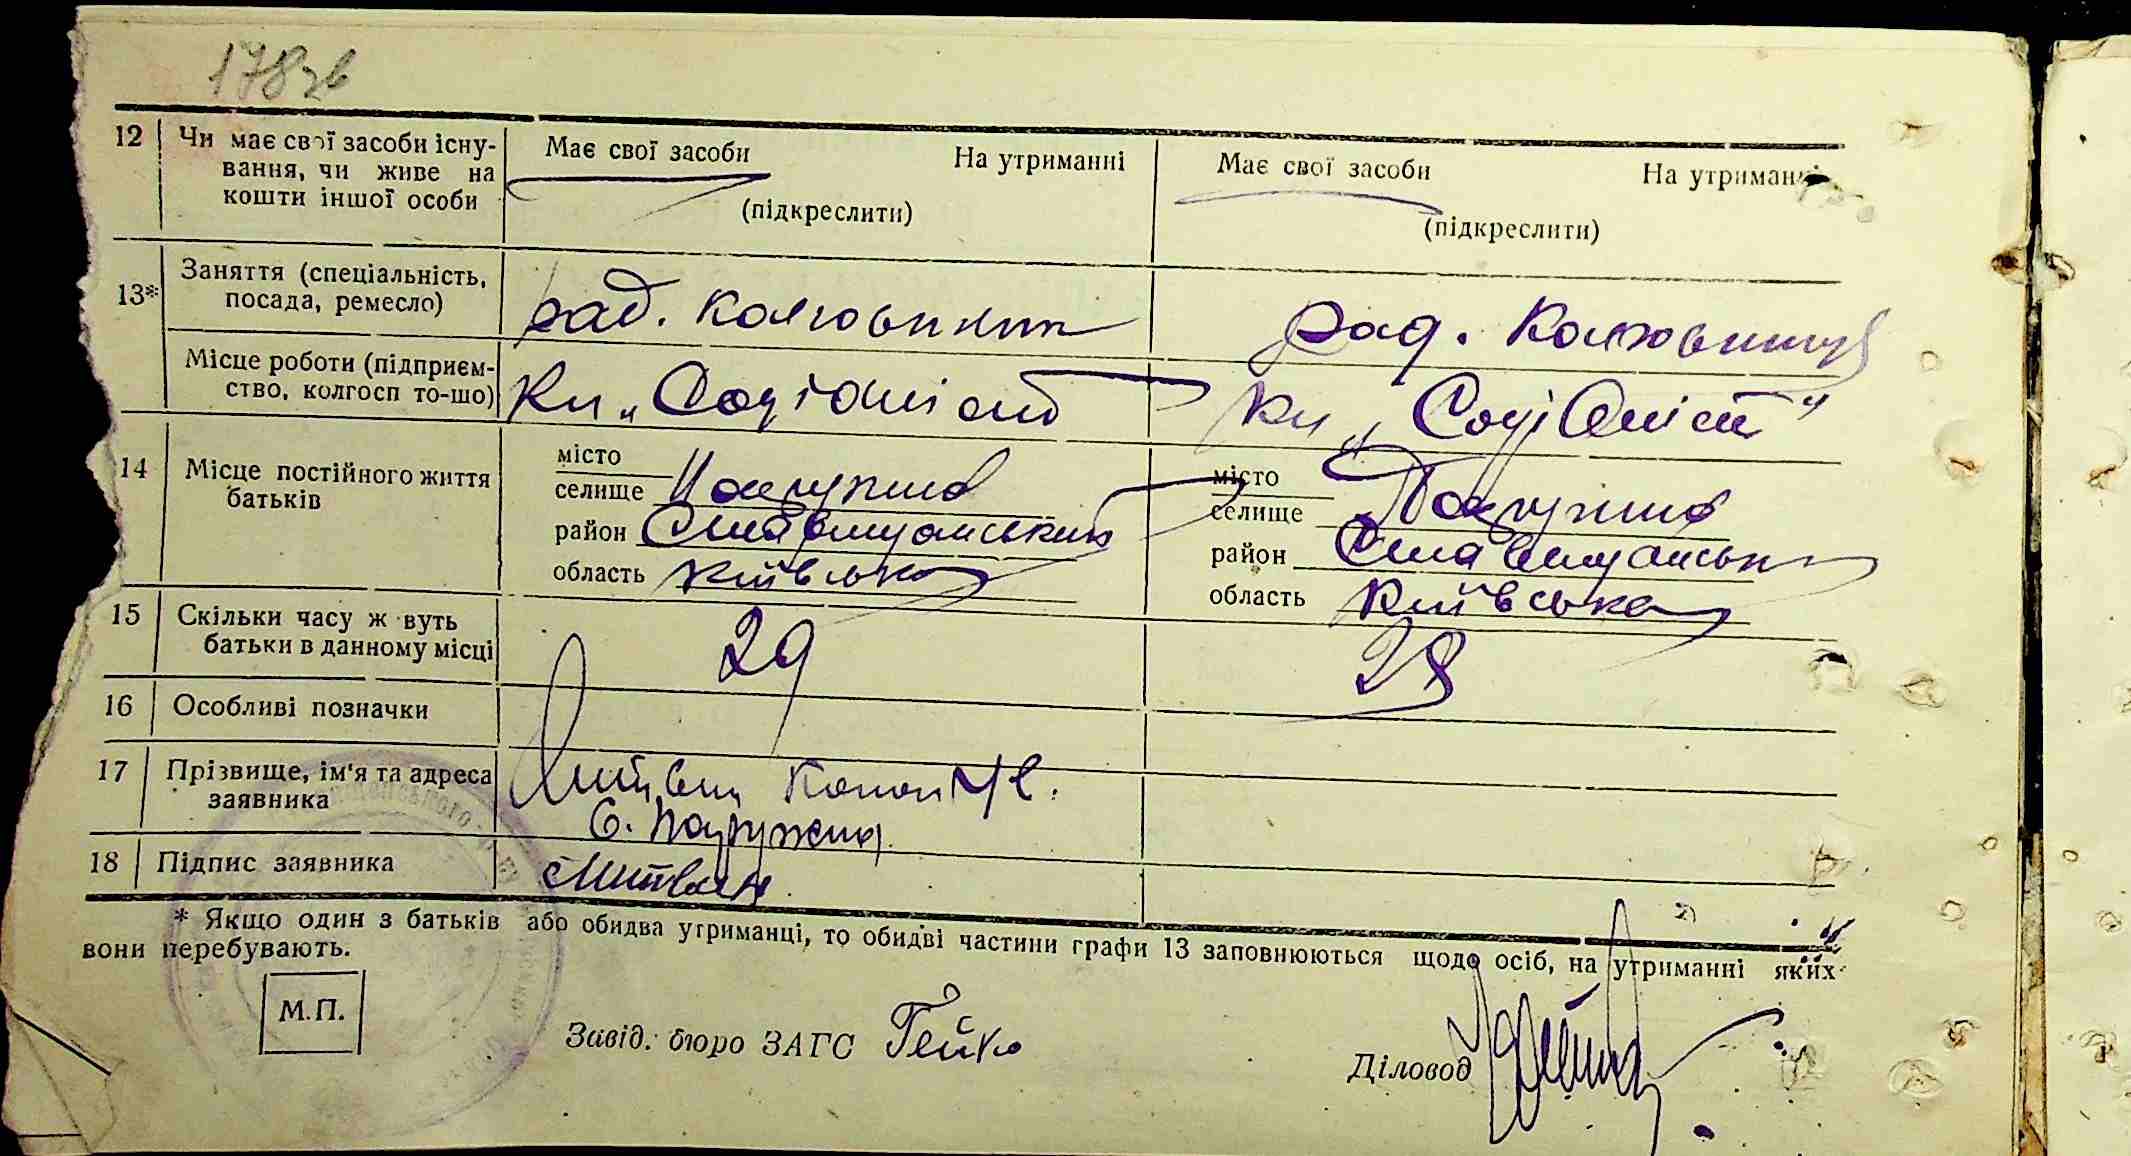 178зв
12 Чи має свої засоби існу- Має свої засоби На утриманні Має свої засоби На утриманні
вання, чи живе на
кошти іншої особи (підкреслити) (підкреслити)
13* Заняття (спеціальність,
посада, ремесло) рад. колговпник рад. колговпниця
Місце роботи (підприєм-
ство, колгосп то-що) Кл „Соціаліст Кл „Соціаліст"
14 Місце постійного життя
батьків
місто місто
селище селище
район район
область Київська область Київська
15 Скільки часу ж вуть
батьки в данному місці 29 28
16 Особливі позначки
17 Прізвище, ім'я та адреса
заявника Литвин
с.
18 Підпис заявника Литвин
* Якщо один з батьків або обидва утриманці, то обидві частини графи 13 заповнюються щодо осіб, на утриманні яких
вони перебувають.
М.П.
Завід. бюро ЗАГС Гейко
Діловод